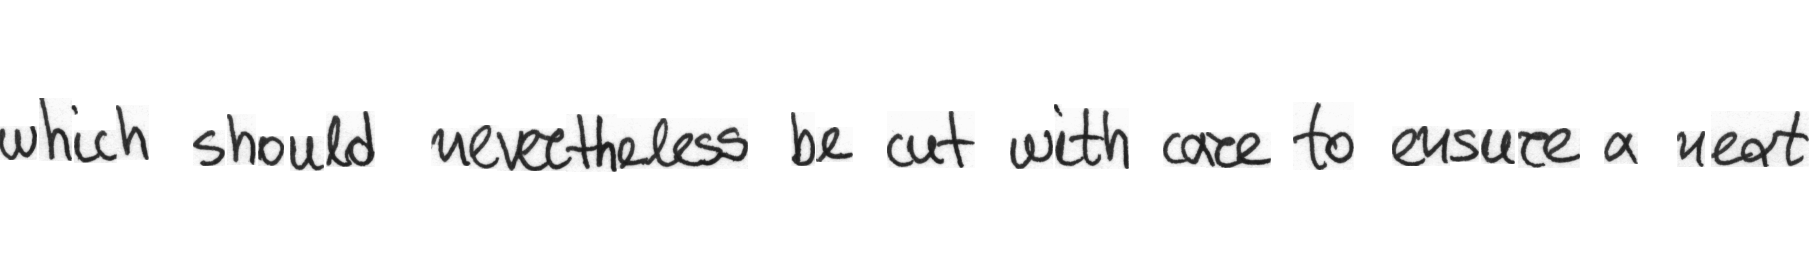 which should nevertheless be cut with care to ensure a neat